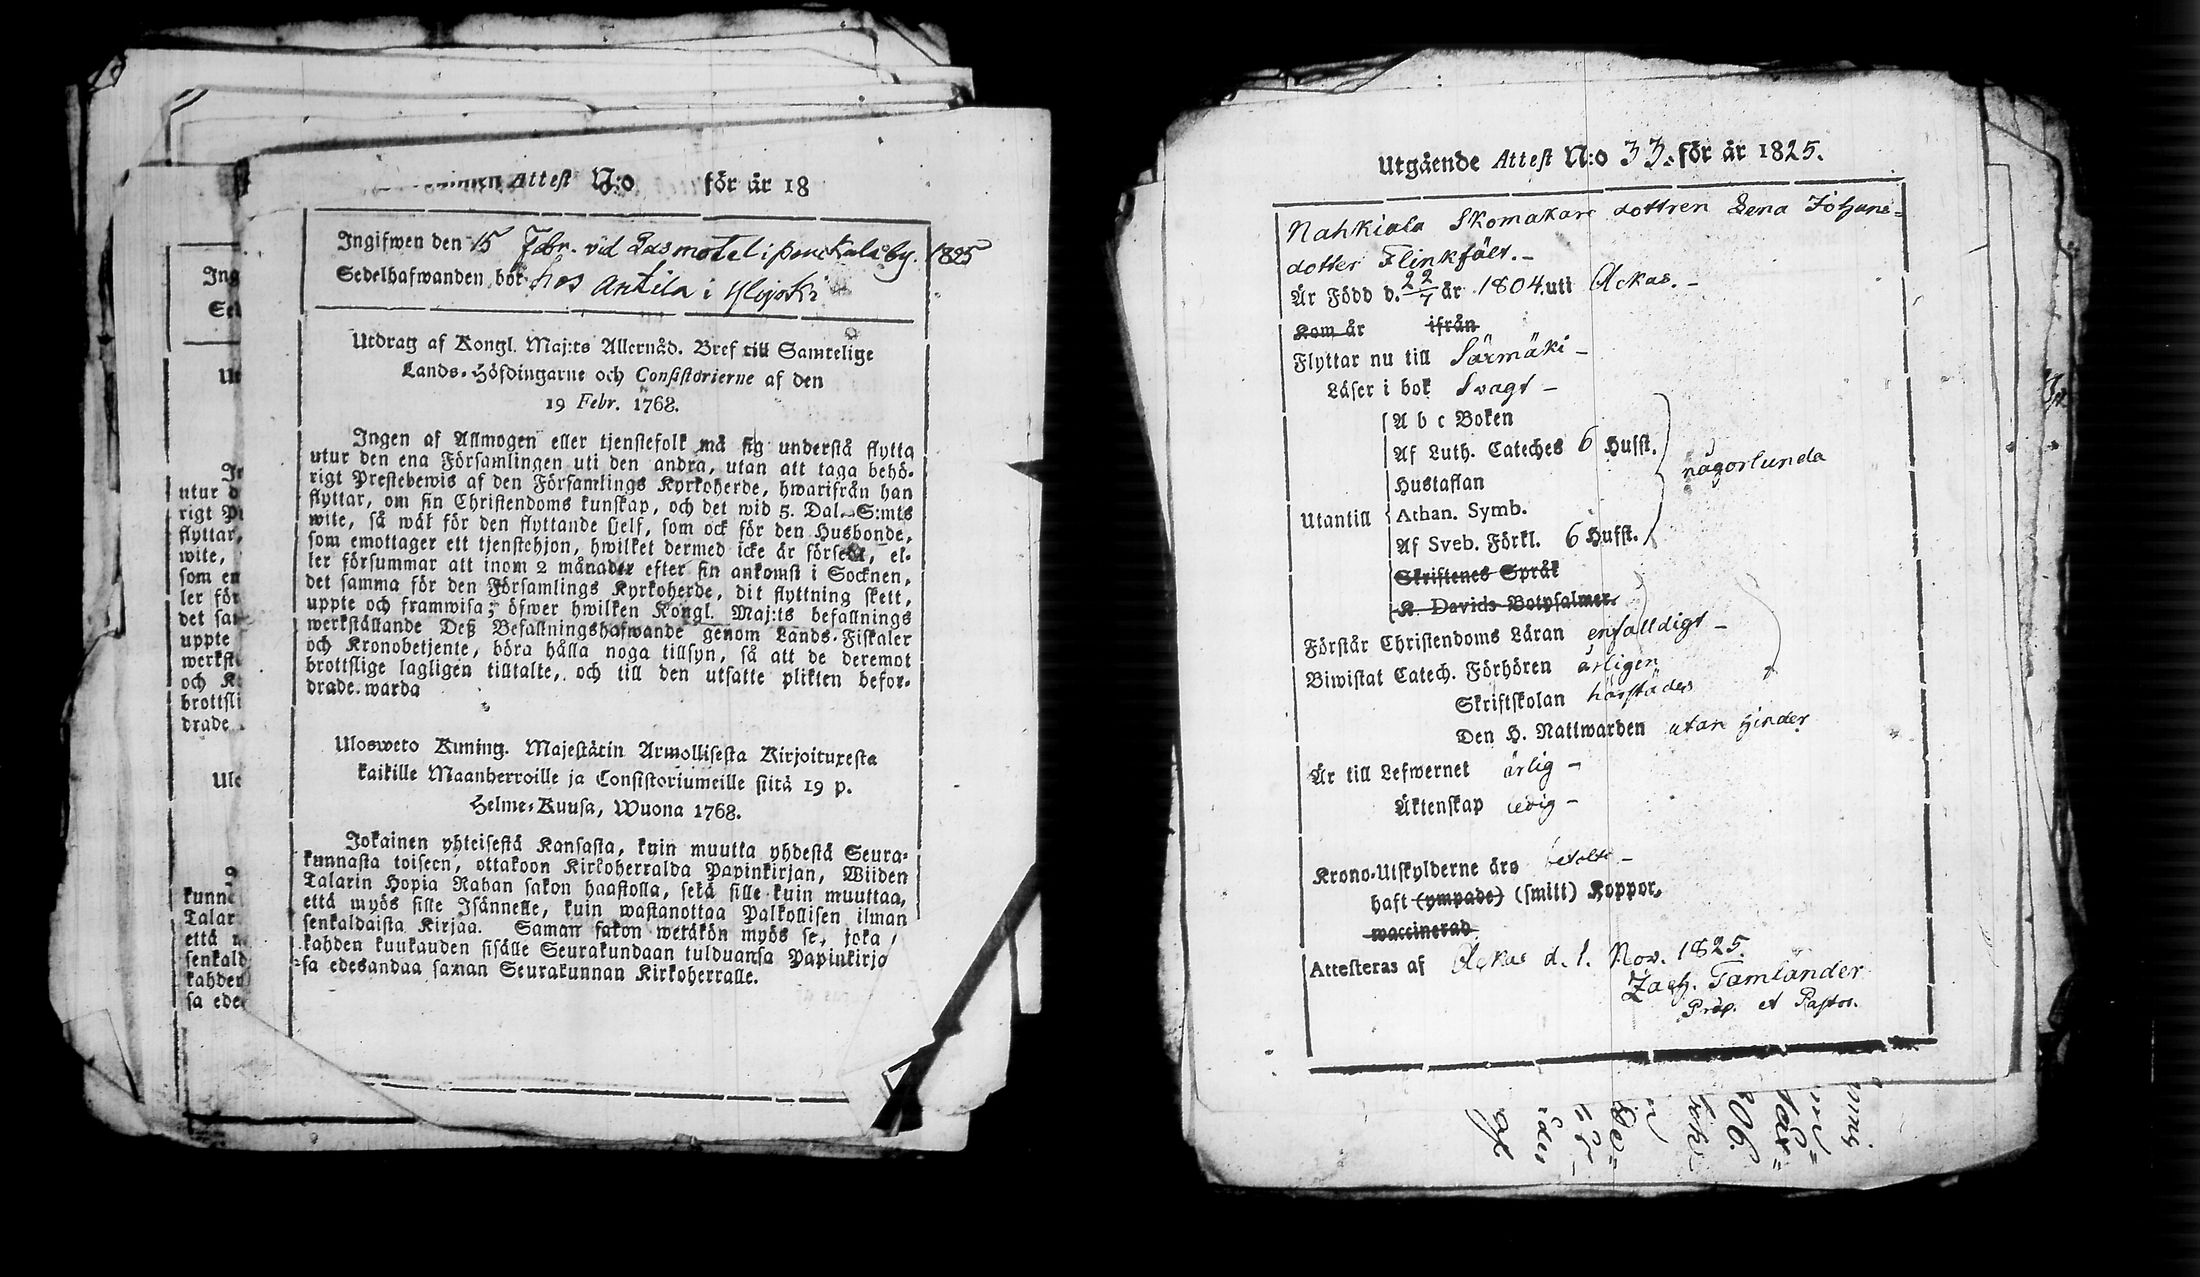 Attest N:o för år 18
Ingifwen den 15 Febr. vid Läsmötet i by 1825
Sedelhafwanden bör hos Antila i Ylijoki
Utdrag af Kongl. Maj:ts Allernåd. Bref till Samtelige
Lands-Höfdingarne och Consistorierne af den
19 Febr. 1768.
Ingen af Allmogen eller tjenstefolk må sig understå flytta
utur den ena Församlingen uti den andra, utan att taga behö-
rigt Prestebewis af den Församlings Kyrkoherde, hwarifrån han
flyttar, om sin Christendoms kunskap, och det wid 5. Dal. S:mts
wite, så wäl för den flyttande sielf, som ock för den Husbonde,
som emottager ett tjenstehjon, hwilket dermed icke är försedt, el-
ler försummar att inom 2 månader efter sin ankomst i Socknen,
det samma för den Församlings Kyrkoherde, dit flyttning skett,
uppte och framwisa; öfwer hwilken Kongl. Maj:ts befallnings
werkställande Deß Befallningshafwande genom Lands-Fiskaler
och Kronobetjente, böra hålla noga tillsyn, så att de deremot
brottslige lagligen tilltalte, och till den utsatte plikten befor-
drade warda
Ulosweto Kuning. Majestätin Armollisesta Kirjoituxesta
kaikille Maanherroille ja Consistoriumeille siitä 19 p.
Helme-Kuusa, Wuona 1768.
Jokainen yhteisestä Kansasta, kuin muutta yhdestä Seura-
kunnasta toiseen, ottakoon Kirkoherralda Papinkirjan, Wiiden
Talarin Hopia Rahan sakon haastolla, sekä sille kuin muuttaa,
että myös sille Isännelle, kuin wastanottaa Palkollisen ilman
senkaldaista Kirjaa. Saman sakon wetäkön myös se, joka
kahden kuukauden sisälle Seurakundaan tulduansa Papinkirjo
sa edesandaa saman Seurakunnan Kirkoherralle.
Utgående Attest N:o 33. för år 1825.
Nahkiala Skomakare dottren Lena Johans=
dotter Flinkfält.-
Är Född d. 22/7 år 1804. uti Ackas.-
Kom år ifrån
Flyttar nu till Särmäki -
Läser i bok Svagt -
A b c Boken
Af Luth. Cateches 6 Hufst.
Hustaflan
någorlunda
Utantill
Athan. Symb.
Af Sveb. Förkl. 6 Hufst.
Skriftenes Språk
K. Davids Botpsalmer.
Förstår Christendoms Läran enfalldigt -
Biwistat Catech. Förhören årligen
Skriftskolan härstädes
Den H. Nattwarden utan hinder
Är till Lefwernet ärlig -
Äktenskap ledig -
Krono-Utskylderne äro betalte -
haft (ympade) (smitt) Koppor,
waccinerad
Attesteras af Ackas d. 1. Nov. 1825.
Zach. Tamlander
Præp. et Pastor.